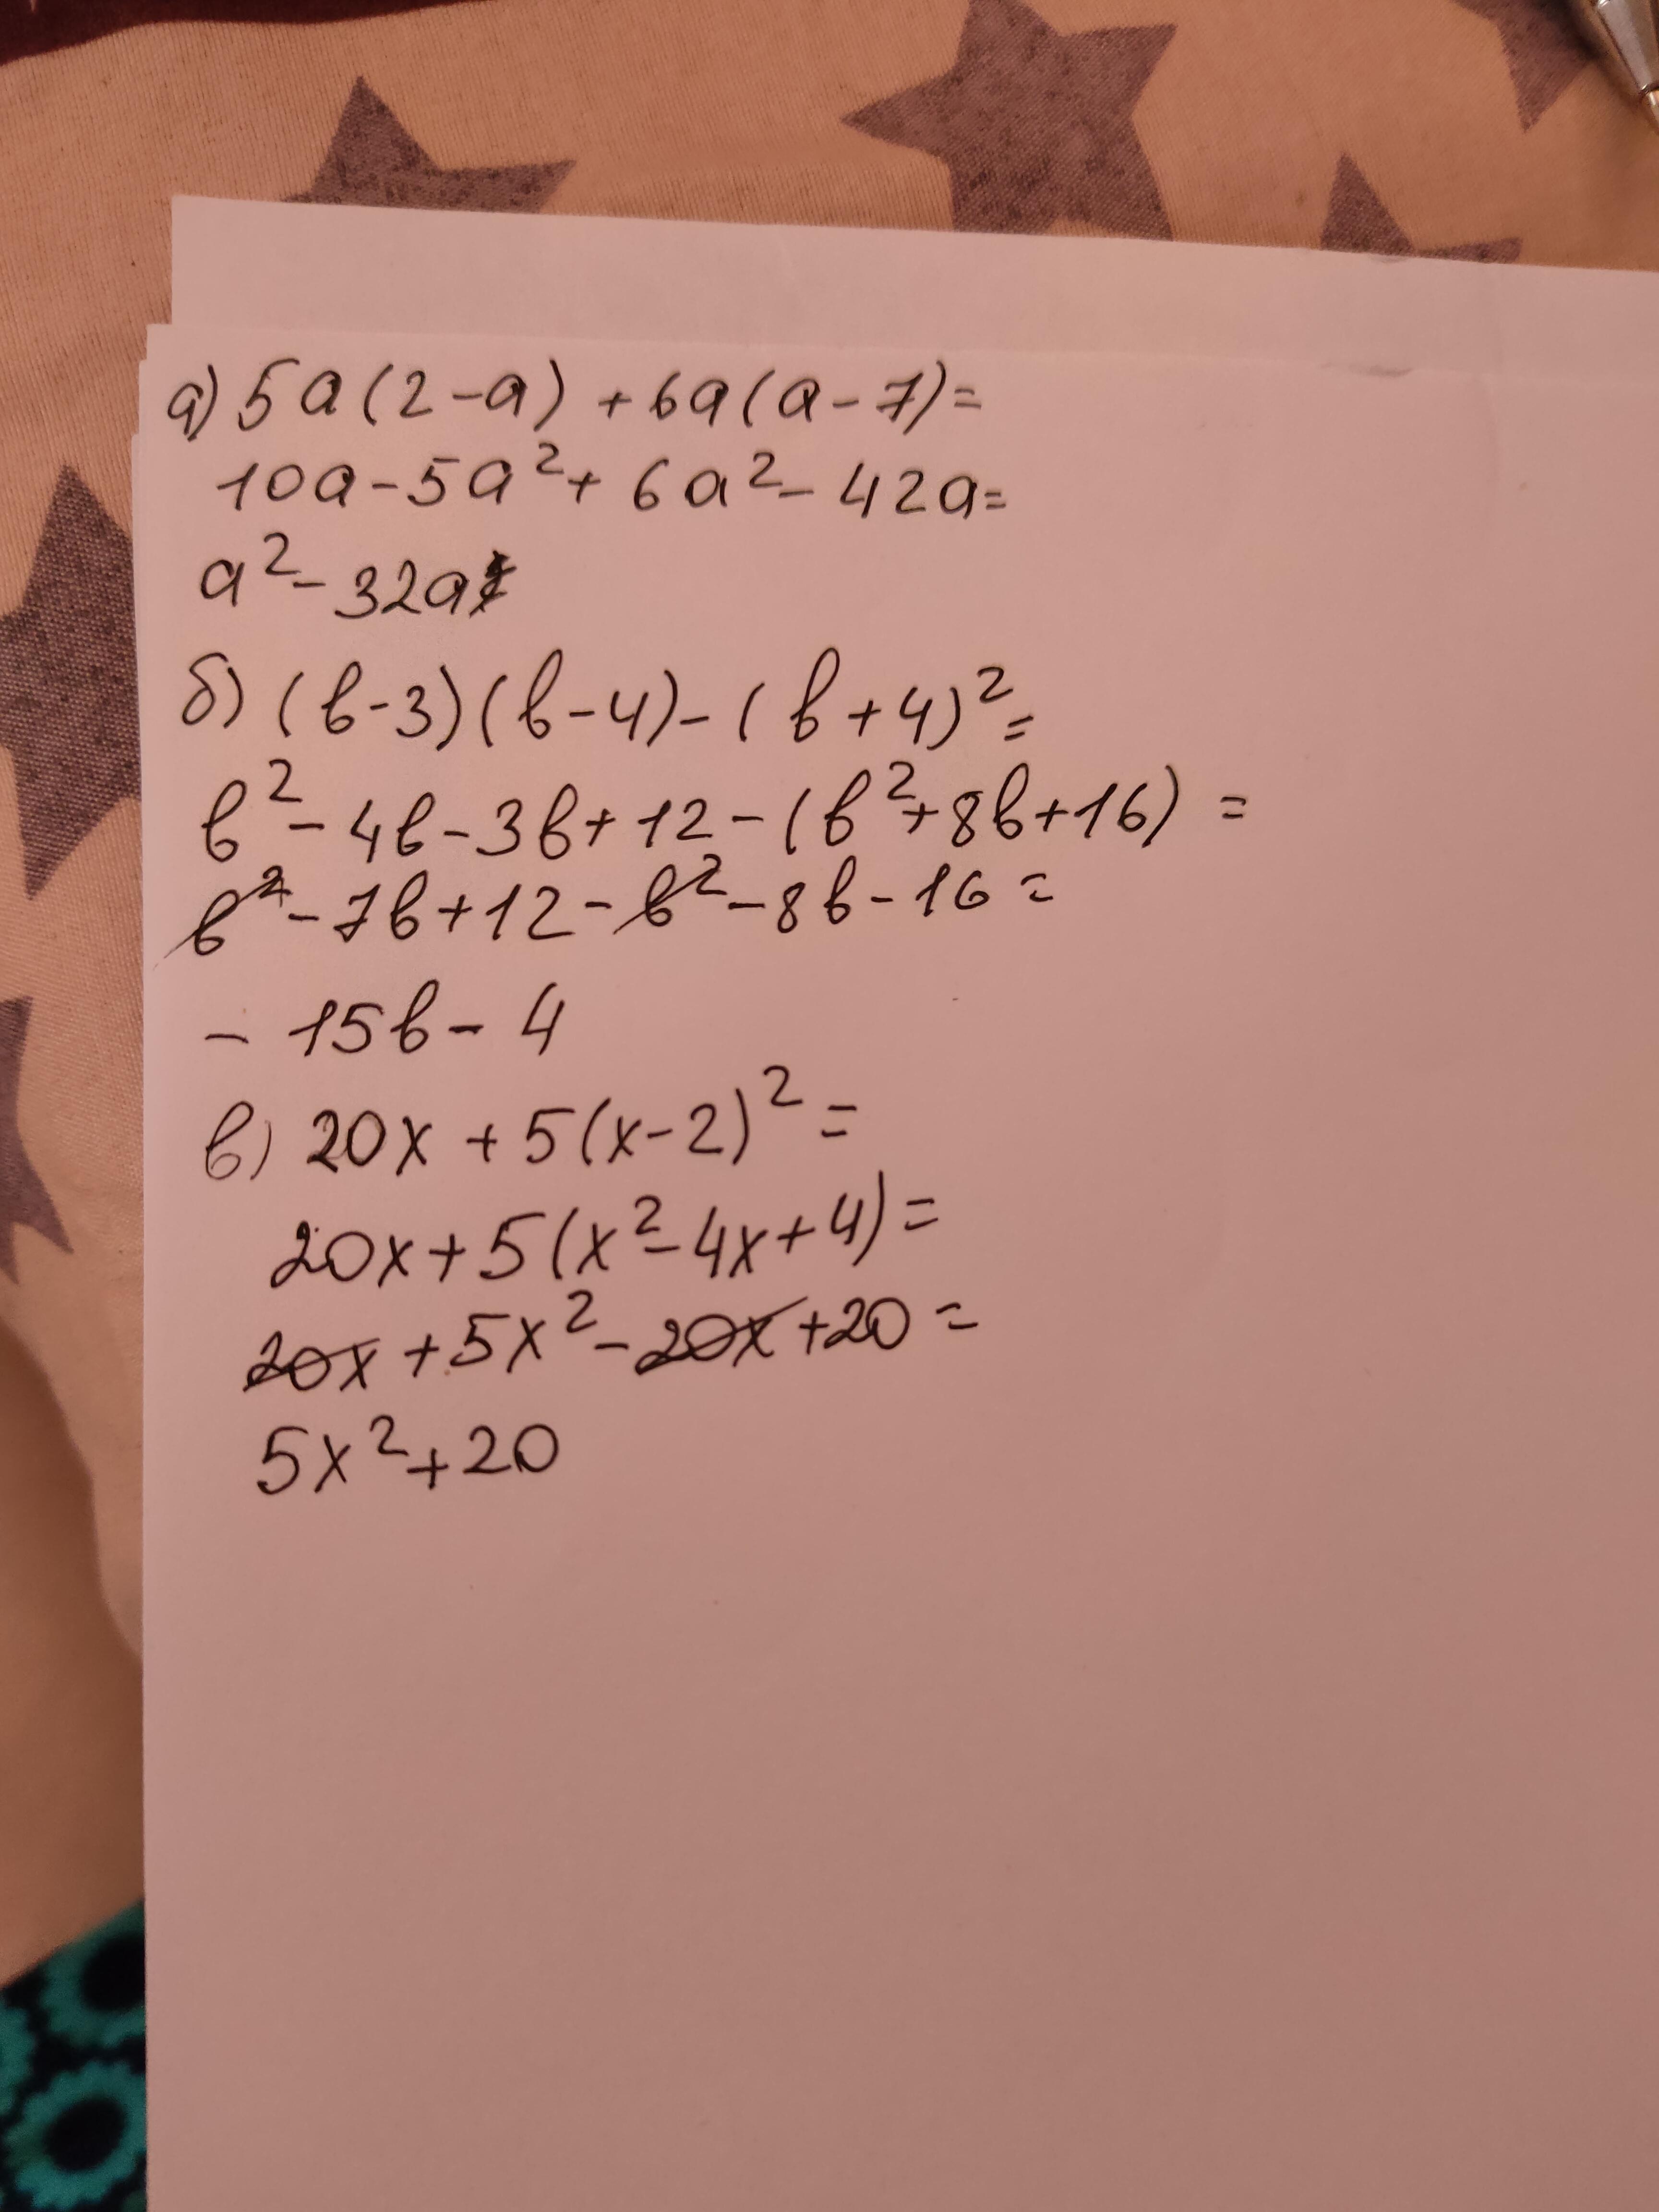 а) 5a(2-a) +6a(a-7)=
10a-5a²+6a²-42a=
a²-32a
б) (b-3)(b-4)-(b+4)²=
b²-4b-3b+12-(b²+8b+16) =
b²-7b+12-b²-8b-16=
-15b-4
в) 20x+5(x-2)²=
20x+5(x²-4x+4)=
20x+5x²-20x+20=
5x²+20